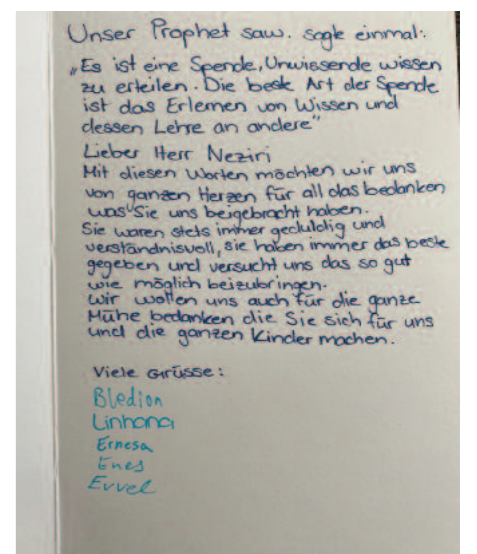 Unser Prophet saw. sagte einmal:
„Es ist eine Spende, Unwissende wissen
zu erteilen. Die beste Art der Spende
ist das Erlernen von Wissen und
dessen Lehre an andere"
Lieber Herr Neziri
Mit diesen Worten möchten wir uns
von ganzen Herzen für all das bedanken
was Sie uns beigebracht haben.
Sie waren stets immer geduldig und
verständnisvoll, sie haben immer das beste
gegeben und versucht uns das so gut
wie möglich beizubringen.
Wir wollen uns auch für die ganze
Mühe bedanken die Sie sich für uns
und die ganzen Kinder machen.
Viele Grüsse:
Bledion
Linhana
Ernesa
Enes
Evvel